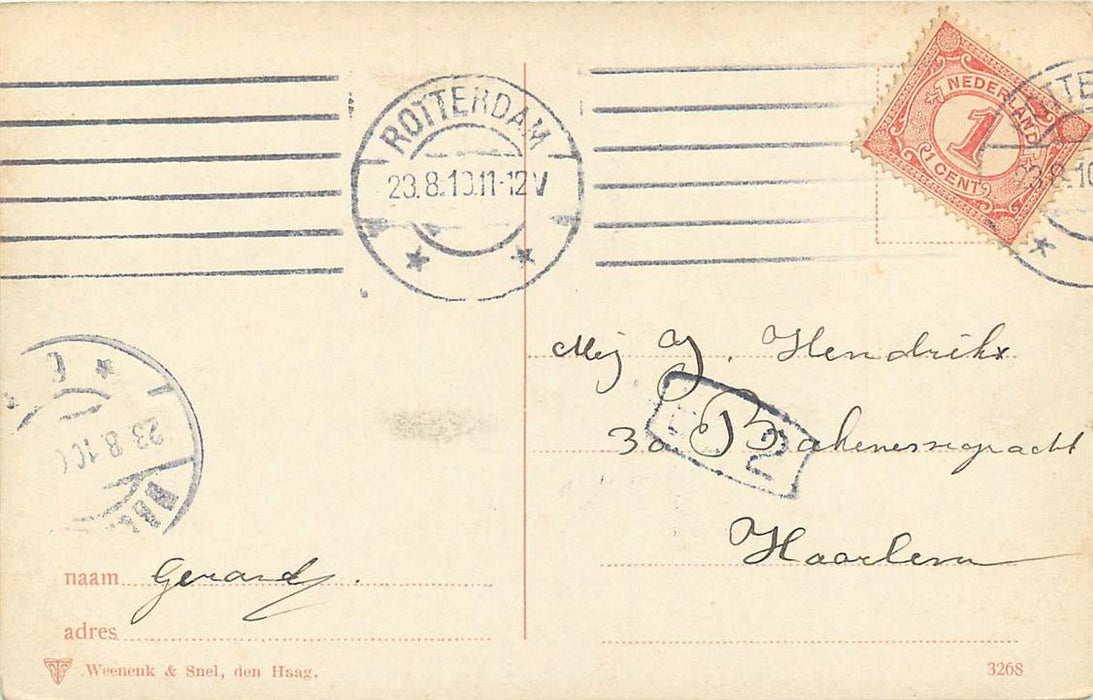 ROTTERDAM
23.8.10.11-12V
NEDERLAND
1
1 CENT
23.8.10
Mej J. Hendrikx
30 Bakenessegracht
2
Haarlem
23.8.10
naam Gerard.
adres
Weenenk & Snel, den Haag.
3268